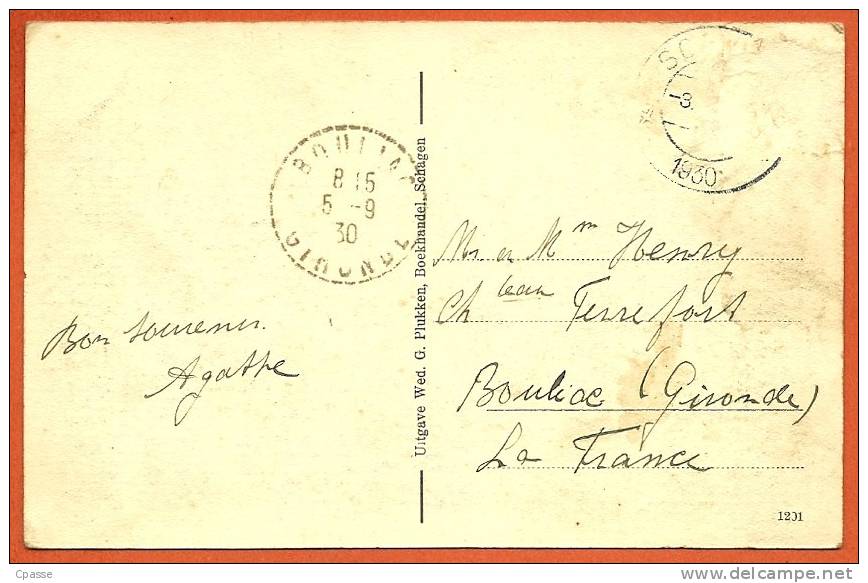 BOULIAC
8 15
5 -9
30
GIRONDE
SC
3
1930
Bon souvenir.
Agathe
Uitgave Wed. G. Plukken, Boekhandel, Schagen
Mr et Mm Henry
Chteau Terrefort
Bouliac (Gironde)
La France
1201
Cpasse
delcampe.net